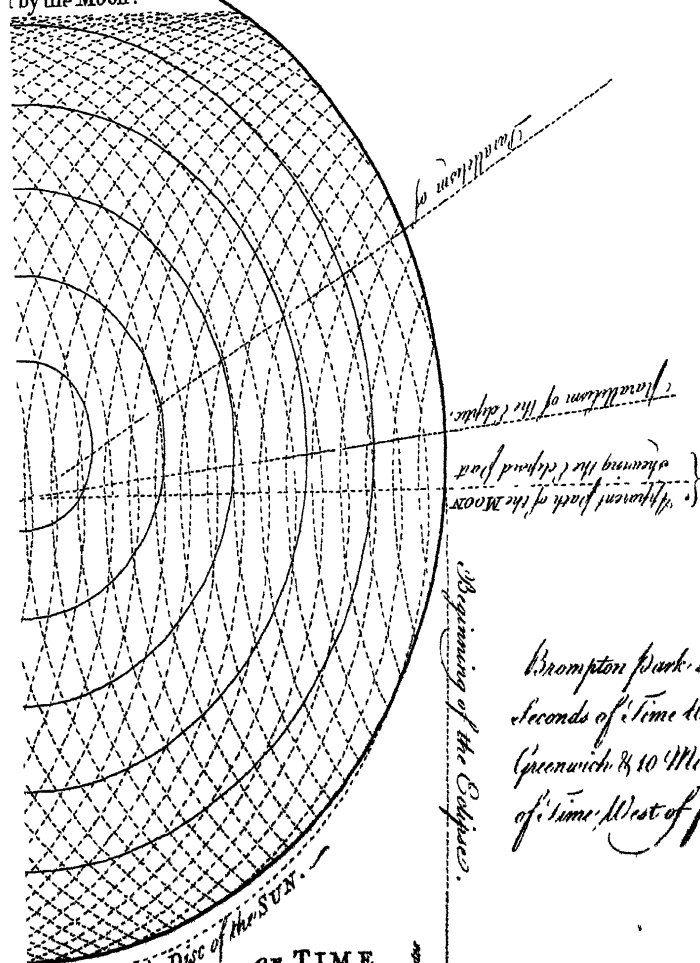 t by the Moon.
Parallelism of
Parallelism of the Ecliptic.
Apparent path of the MOON
Shewing the Eclipsed part
Beginning of the Eclipse.
Brompton Park
Seconds of Time
Greenwich & 10 Mi
of Time West of
Disc of the SUN.
OF TIME